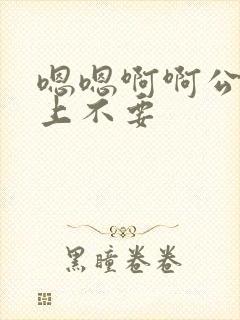 嗯嗯啊啊公
上不要
黑瞳卷卷